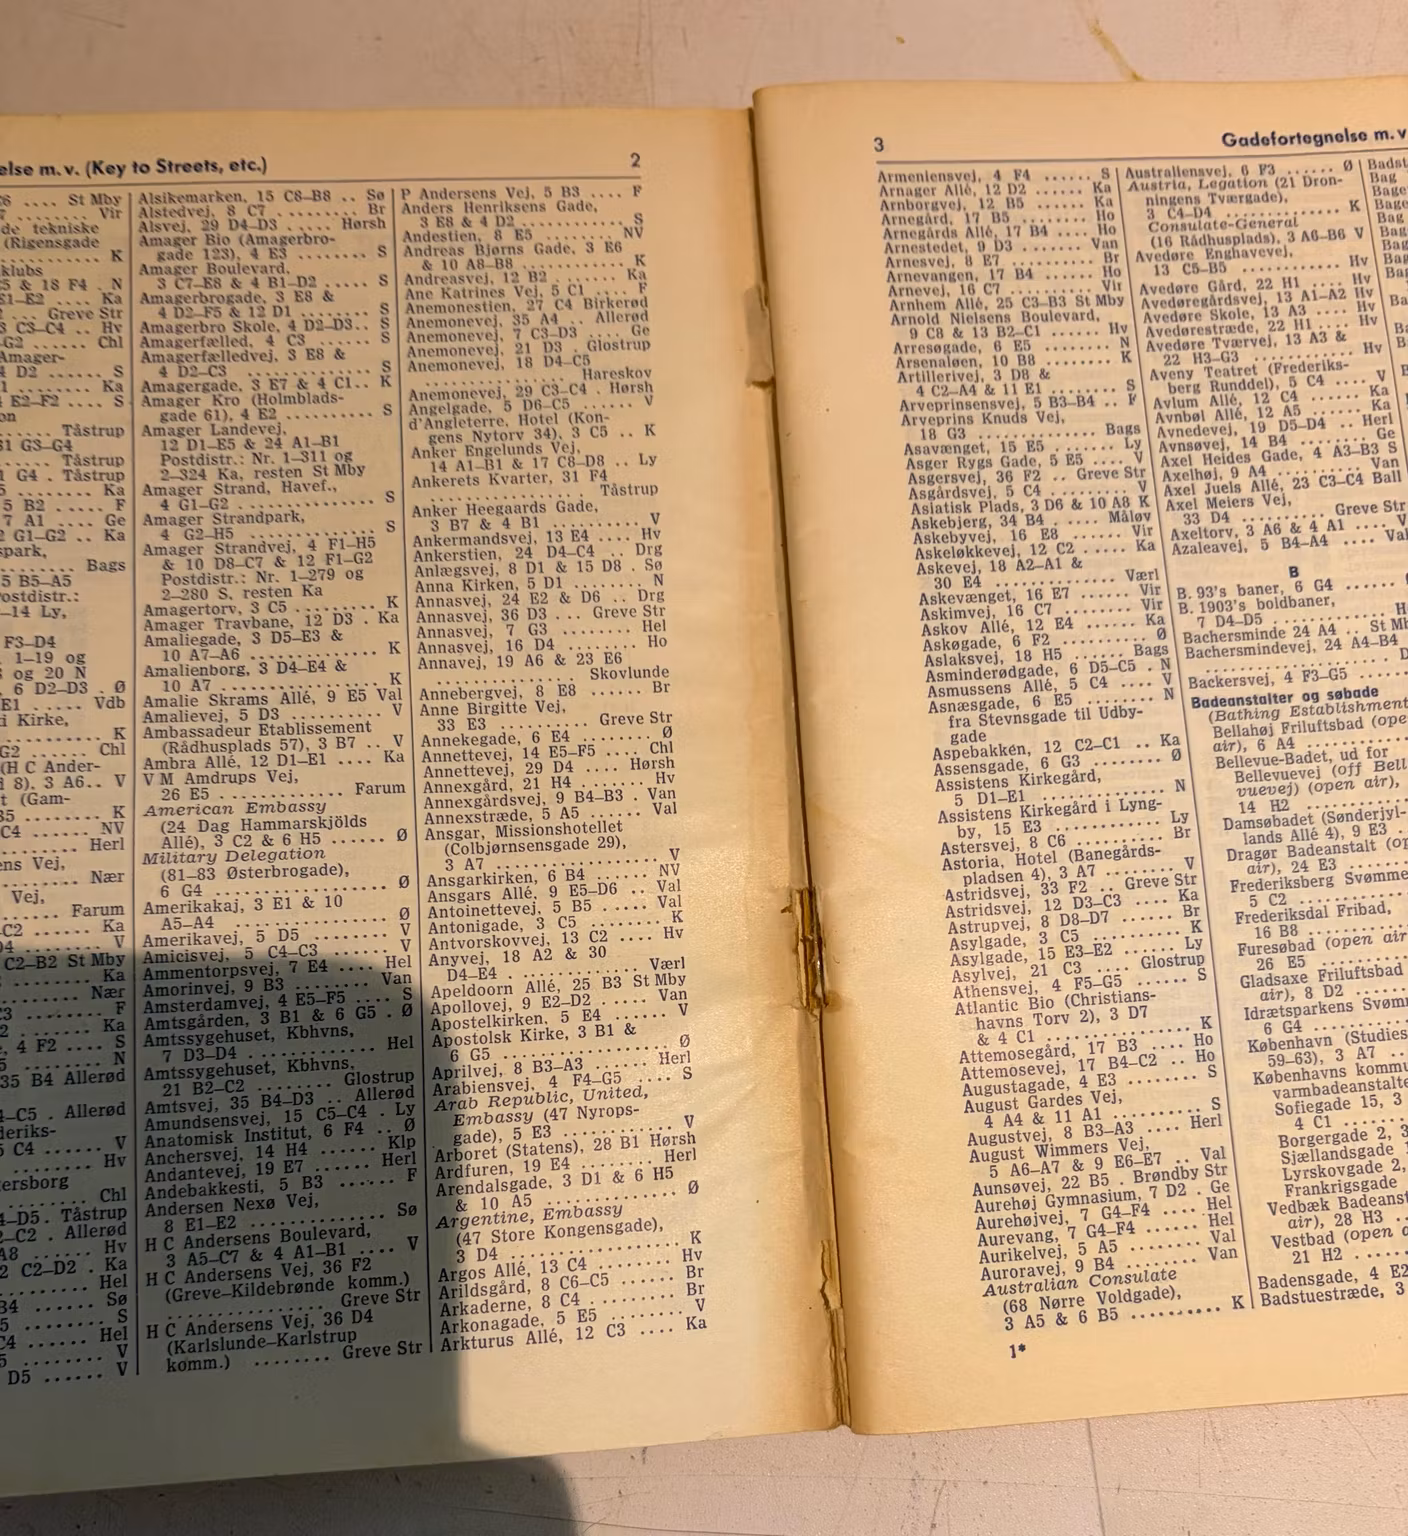 else m. v. (Key to Streets, etc.)
2
6 .... St Mby
7 ........ Vir
de tekniske
(Rigensgade
............ K
klubs
5 & 18 F4 . N
E1–E2 .... Ka
... Greve Str
3 C3–C4 .. Hv
–G2 ...... Chl
Amager-
4 D2 ...... S
1 ........ Ka
E2–F2 .... S
on
........ Tåstrup
31 G3–G4
........ Tåstrup
1 G4 . Tåstrup
5 ........ Ka
5 B2 ...... F
7 A1 ..... Ge
2 G1–G2 .. Ka
spark,
........ Bags
5 B5–A5
Postdistr.:
–14 Ly,
F3–D4
1–19 og
og 20 N
6 D2–D3 . Ø
E1 ..... Vdb
i Kirke,
............ K
G2 ...... Chl
(H C Ander-
8). 3 A6.. V
t (Gam-
35 ........ K
C4 ...... NV
........ Herl
ens Vej,
........ Nær
Vej,
...... Farum
–C2 ..... Ka
04 ........ V
C2–B2 St Mby
......... Ka
........ Nær
C3 ........ F
2 ........ Ka
, 4 F2 .... S
5 ........ N
35 B4 Allerød
4–C5 . Allerød
deriks-
5 C4 ...... V
.......... Hv
tersborg
........ Chl
4–D5 . Tåstrup
2–C2 . Allerød
A8 ...... Hv
2 C2–D2 . Ka
........ Hel
B4 ...... Sø
5 ........ S
C4 ...... Hel
5 ........ V
D5 ...... V
Alsikemarken, 15 C8–B8 .. Sø
Alstedvej, 8 C7 ........ Br
Alsvej, 29 D4–D3 .... Hørsh
Amager Bio (Amagerbro-
gade 123), 4 E3 ........ S
Amager Boulevard,
3 C7–E8 & 4 B1–D2 ..... S
Amagerbrogade, 3 E8 &
4 D2–F5 & 12 D1 ....... S
Amagerbro Skole, 4 D2–D3.. S
Amagerfælled, 4 C3 ...... S
Amagerfælledvej, 3 E8 &
4 D2–C3 .............. S
Amagergade, 3 E7 & 4 C1.. K
Amager Kro (Holmblads-
gade 61), 4 E2 ......... S
Amager Landevej,
12 D1–E5 & 24 A1–B1
Postdistr.: Nr. 1–311 og
2–324 Ka, resten St Mby
Amager Strand, Havef.,
4 G1–G2 .............. S
Amager Strandpark,
4 G2–H5 .............. S
Amager Strandvej, 4 F1–H5
& 10 D8–C7 & 12 F1–G2
Postdistr.: Nr. 1–279 og
2–280 S. resten Ka
Amagertorv, 3 C5 ........ K
Amager Travbane, 12 D3 . Ka
Amaliegade, 3 D5–E3 &
10 A7–A6 ............. K
Amalienborg, 3 D4–E4 &
10 A7 ................ K
Amalie Skrams Allé, 9 E5 Val
Amalievej, 5 D3 ......... V
Ambassadeur Etablissement
(Rådhusplads 57), 3 B7 .. V
Ambra Allé, 12 D1–E1 .... Ka
V M Amdrups Vej,
26 E5 ............ Farum
American Embassy
(24 Dag Hammarskjölds
Allé), 3 C2 & 6 H5 ...... Ø
Military Delegation
(81–83 Østerbrogade),
6 G4 ................. Ø
Amerikakaj, 3 E1 & 10
A5–A4 ................ Ø
Amerikavej, 5 D5 ........ V
Amicisvej, 5 C4–C3 ...... V
Ammentorpsvej, 7 E4 .... Hel
Amorinvej, 9 B3 ........ Van
Amsterdamvej, 4 E5–F5 .... S
Amtsgården, 3 B1 & 6 G5 . Ø
Amtssygehuset, Kbhvns,
7 D3–D4 ............. Hel
Amtssygehuset, Kbhvns,
21 B2–C2 ........ Glostrup
Amtsvej, 35 B4–D3 .. Allerød
Amundsensvej, 15 C5–C4 . Ly
Anatomisk Institut, 6 F4 .. Ø
Anchersvej, 14 H4 ....... Klp
Andantevej, 19 E7 ...... Herl
Andebakkesti, 5 B3 ...... F
Andersen Nexø Vej,
8 E1–E2 ............. Sø
H C Andersens Boulevard,
3 A5–C7 & 4 A1–B1 .... V
H C Andersens Vej, 36 F2
(Greve–Kildebrønde komm.)
.............. Greve Str
H C Andersens Vej, 36 D4
(Karlslunde–Karlstrup
komm.) ........ Greve Str
P Andersens Vej, 5 B3 .... F
Anders Henriksens Gade,
3 E8 & 4 D2 ........... S
Andestien, 8 E5 ........ NV
Andreas Bjørns Gade, 3 E6
& 10 A8–B8 ........... K
Andreasvej, 12 B2 ....... Ka
Ane Katrines Vej, 5 C1 .... F
Anemonestien, 27 C4 Birkerød
Anemonevej, 35 A4 .. Allerød
Anemonevej, 7 C3–D3 .... Ge
Anemonevej, 21 D3 . Glostrup
Anemonevej, 18 D4–C5
.............. Hareskov
Anemonevej, 29 C3–C4 . Hørsh
Angelgade, 5 D6–C5 ...... V
d'Angleterre, Hotel (Kon-
gens Nytorv 34), 3 C5 .. K
Anker Engelunds Vej,
14 A1–B1 & 17 C8–D8 .. Ly
Ankerets Kvarter, 31 F4
.............. Tåstrup
Anker Heegaards Gade,
3 B7 & 4 B1 ........... V
Ankermandsvej, 13 E4 .... Hv
Ankerstien, 24 D4–C4 .. Drg
Anlægsvej, 8 D1 & 15 D8 . Sø
Anna Kirken, 5 D1 ....... N
Annasvej, 24 E2 & D6 .. Drg
Annasvej, 36 D3 ... Greve Str
Annasvej, 7 G3 ........ Hel
Annasvej, 16 D4 ........ Ho
Annavej, 19 A6 & 23 E6
.............. Skovlunde
Annebergvej, 8 E8 ...... Br
Anne Birgitte Vej,
33 E3 .......... Greve Str
Annekegade, 6 E4 ....... Ø
Annettevej, 14 E5–F5 .... Chl
Annettevej, 29 D4 .... Hørsh
Annexgård, 21 H4 ....... Hv
Annexgårdsvej, 9 B4–B3 . Van
Annexstræde, 5 A5 ..... Val
Ansgar, Missionshotellet
(Colbjørnsensgade 29),
3 A7 ................. V
Ansgarkirken, 6 B4 ..... NV
Ansgars Allé, 9 E5–D6 .. Val
Antoinettevej, 5 B5 ..... Val
Antonigade, 3 C5 ....... K
Antvorskovvej, 13 C2 .... Hv
Anyvej, 18 A2 & 30
D4–E4 ............. Værl
Apeldoorn Allé, 25 B3 St Mby
Apollovej, 9 E2–D2 ..... Van
Apostelkirken, 5 E4 ..... V
Apostolsk Kirke, 3 B1 &
6 G5 ................. Ø
Aprilvej, 8 B3–A3 ..... Herl
Arabiensvej, 4 F4–G5 .... S
Arab Republic, United,
Embassy (47 Nyrops-
gade), 5 E3 ........... V
Arboret (Statens), 28 B1 Hørsh
Ardfuren, 19 E4 ....... Herl
Arendalsgade, 3 D1 & 6 H5
& 10 A5 .............. Ø
Argentine, Embassy
(47 Store Kongensgade),
3 D4 ................. K
Argos Allé, 13 C4 ....... Hv
Arildsgård, 8 C6–C5 ..... Br
Arkaderne, 8 C4 ........ Br
Arkonagade, 5 E5 ....... V
Arkturus Allé, 12 C3 .... Ka
3
Gadefortegnelse m. v
Armeniensvej, 4 F4 ...... S
Arnager Allé, 12 D2 ..... Ka
Arnborgvej, 12 B5 ...... Ka
Arnegård, 17 B5 ........ Ho
Arnegårds Allé, 17 B4 ... Ho
Arnestedet, 9 D3 ....... Van
Arnesvej, 8 E7 ......... Br
Arnevangen, 17 B4 ...... Ho
Arnevej, 16 C7 ......... Vir
Arnhem Allé, 25 C3–B3 St Mby
Arnold Nielsens Boulevard,
9 C8 & 13 B2–C1 ...... Hv
Arresøgade, 6 E5 ....... N
Arsenaløen, 10 B8 ...... K
Artillerivej, 3 D8 &
4 C2–A4 & 11 E1 ...... S
Arveprinsensvej, 5 B3–B4 .. F
Arveprins Knuds Vej,
18 G3 .............. Bags
Asavænget, 15 E5 ....... Ly
Asger Rygs Gade, 5 E5 ... V
Asgersvej, 36 F2 .. Greve Str
Asgårdsvej, 5 C4 ........ V
Asiatisk Plads, 3 D6 & 10 A8 K
Askebjerg, 34 B4 ..... Måløv
Askebyvej, 16 E8 ....... Vir
Askeløkkevej, 12 C2 ..... Ka
Askevej, 18 A2–A1 &
30 E4 .............. Værl
Askevænget, 16 E7 ...... Vir
Askimvej, 16 C7 ........ Vir
Askov Allé, 12 E4 ...... Ka
Askøgade, 6 F2 ......... Ø
Aslaksvej, 18 H5 ...... Bags
Asminderødgade, 6 D5–C5 . N
Asmussens Allé, 5 C4 .... V
Asnæsgade, 6 E5 ........ N
fra Stevnsgade til Udby-
gade
Aspebakken, 12 C2–C1 .. Ka
Assensgade, 6 G3 ....... Ø
Assistens Kirkegård,
5 D1–E1 .............. N
Assistens Kirkegård i Lyng-
by, 15 E3 ........... Ly
Astersvej, 8 C6 ........ Br
Astoria, Hotel (Banegårds-
pladsen 4), 3 A7 ....... V
Astridsvej, 33 F2 .. Greve Str
Astridsvej, 12 D3–C3 .... Ka
Astrupvej, 8 D8–D7 ..... Br
Asylgade, 3 C5 ......... K
Asylgade, 15 E3–E2 ..... Ly
Asylvej, 21 C3 .... Glostrup
Athensvej, 4 F5–G5 ..... S
Atlantic Bio (Christians-
havns Torv 2), 3 D7
& 4 C1 ............... K
Attemosegård, 17 B3 .... Ho
Attemosevej, 17 B4–C2 .. Ho
Augustagade, 4 E3 ...... S
August Gardes Vej,
4 A4 & 11 A1 ......... S
Augustvej, 8 B3–A3 .... Herl
August Wimmers Vej,
5 A6–A7 & 9 E6–E7 .. Val
Aunsøvej, 22 B5 . Brøndby Str
Aurehøj Gymnasium, 7 D2 . Ge
Aurehøjvej, 7 G4–F4 .... Hel
Aurevang, 7 G4–F4 ..... Hel
Aurikelvej, 5 A5 ....... Val
Auroravej, 9 B4 ........ Van
Australian Consulate
(68 Nørre Voldgade),
3 A5 & 6 B5 .......... K
1*
Australiensvej, 6 F3 ...... Ø
Austria, Legation (21 Dron-
ningens Tværgade),
3 C4–D4 .............. K
Consulate-General
(16 Rådhusplads), 3 A6–B6 V
Avedøre Enghavevej,
13 C5–B5 ............ Hv
Avedøre Gård, 22 H1 .... Hv
Avedøregårdsvej, 13 A1–A2 Hv
Avedøre Skole, 13 A3 .... Hv
Avedørestræde, 22 H1 .... Hv
Avedøre Tværvej, 13 A3 &
22 H3–G3 ............ Hv
Aveny Teatret (Frederiks-
berg Runddel), 5 C4 .... V
Avlum Allé, 12 C4 ...... Ka
Avnbøl Allé, 12 A5 ..... Ka
Avnedevej, 19 D5–D4 .. Herl
Avnsøvej, 14 B4 ........ Ge
Axel Heides Gade, 4 A3–B3 S
Axelhøj, 9 A4 ......... Van
Axel Juels Allé, 23 C3–C4 Ball
Axel Meiers Vej,
33 D4 ......... Greve Str
Axeltorv, 3 A6 & 4 A1 ... V
Azaleavej, 5 B4–A4 .... Val
B
B. 93's baner, 6 G4 ......
B. 1903's boldbaner,
7 D4–D5 .............
Bachersminde 24 A4 .. St Mb
Bachersmindevej, 24 A4–B4
Backersvej, 4 F3–G5 ......
Badeanstalter og søbade
(Bathing Establishment
Bellahøj Friluftsbad (ope
air), 6 A4 ..........
Bellevue-Badet, ud for
Bellevuevej (off Bell
vuevej) (open air),
14 H2 ...........
Damsøbadet (Sønderjyl-
lands Allé 4), 9 E3 ..
Dragør Badeanstalt (op
air), 24 E3 ........
Frederiksberg Svømme
5 C2 ............
Frederiksdal Fribad,
16 B8 ...........
Furesøbad (open air
26 E5 ..........
Gladsaxe Friluftsbad
air), 8 D2 .......
Idrætsparkens Svøm
6 G4 ...........
København (Studies
59–63), 3 A7 ....
Københavns kommu
varmbadeanstalte
Sofiegade 15, 3
4 C1 .........
Borgergade 2, 3
Sjællandsgade
Lyrskovgade 2,
Frankrigsgade
Vedbæk Badeanst
air), 28 H3 ...
Vestbad (open a
21 H2 ......
Badensgade, 4 E2
Badstuestræde, 3
Badst
Bag
Bage
Bag
Bag